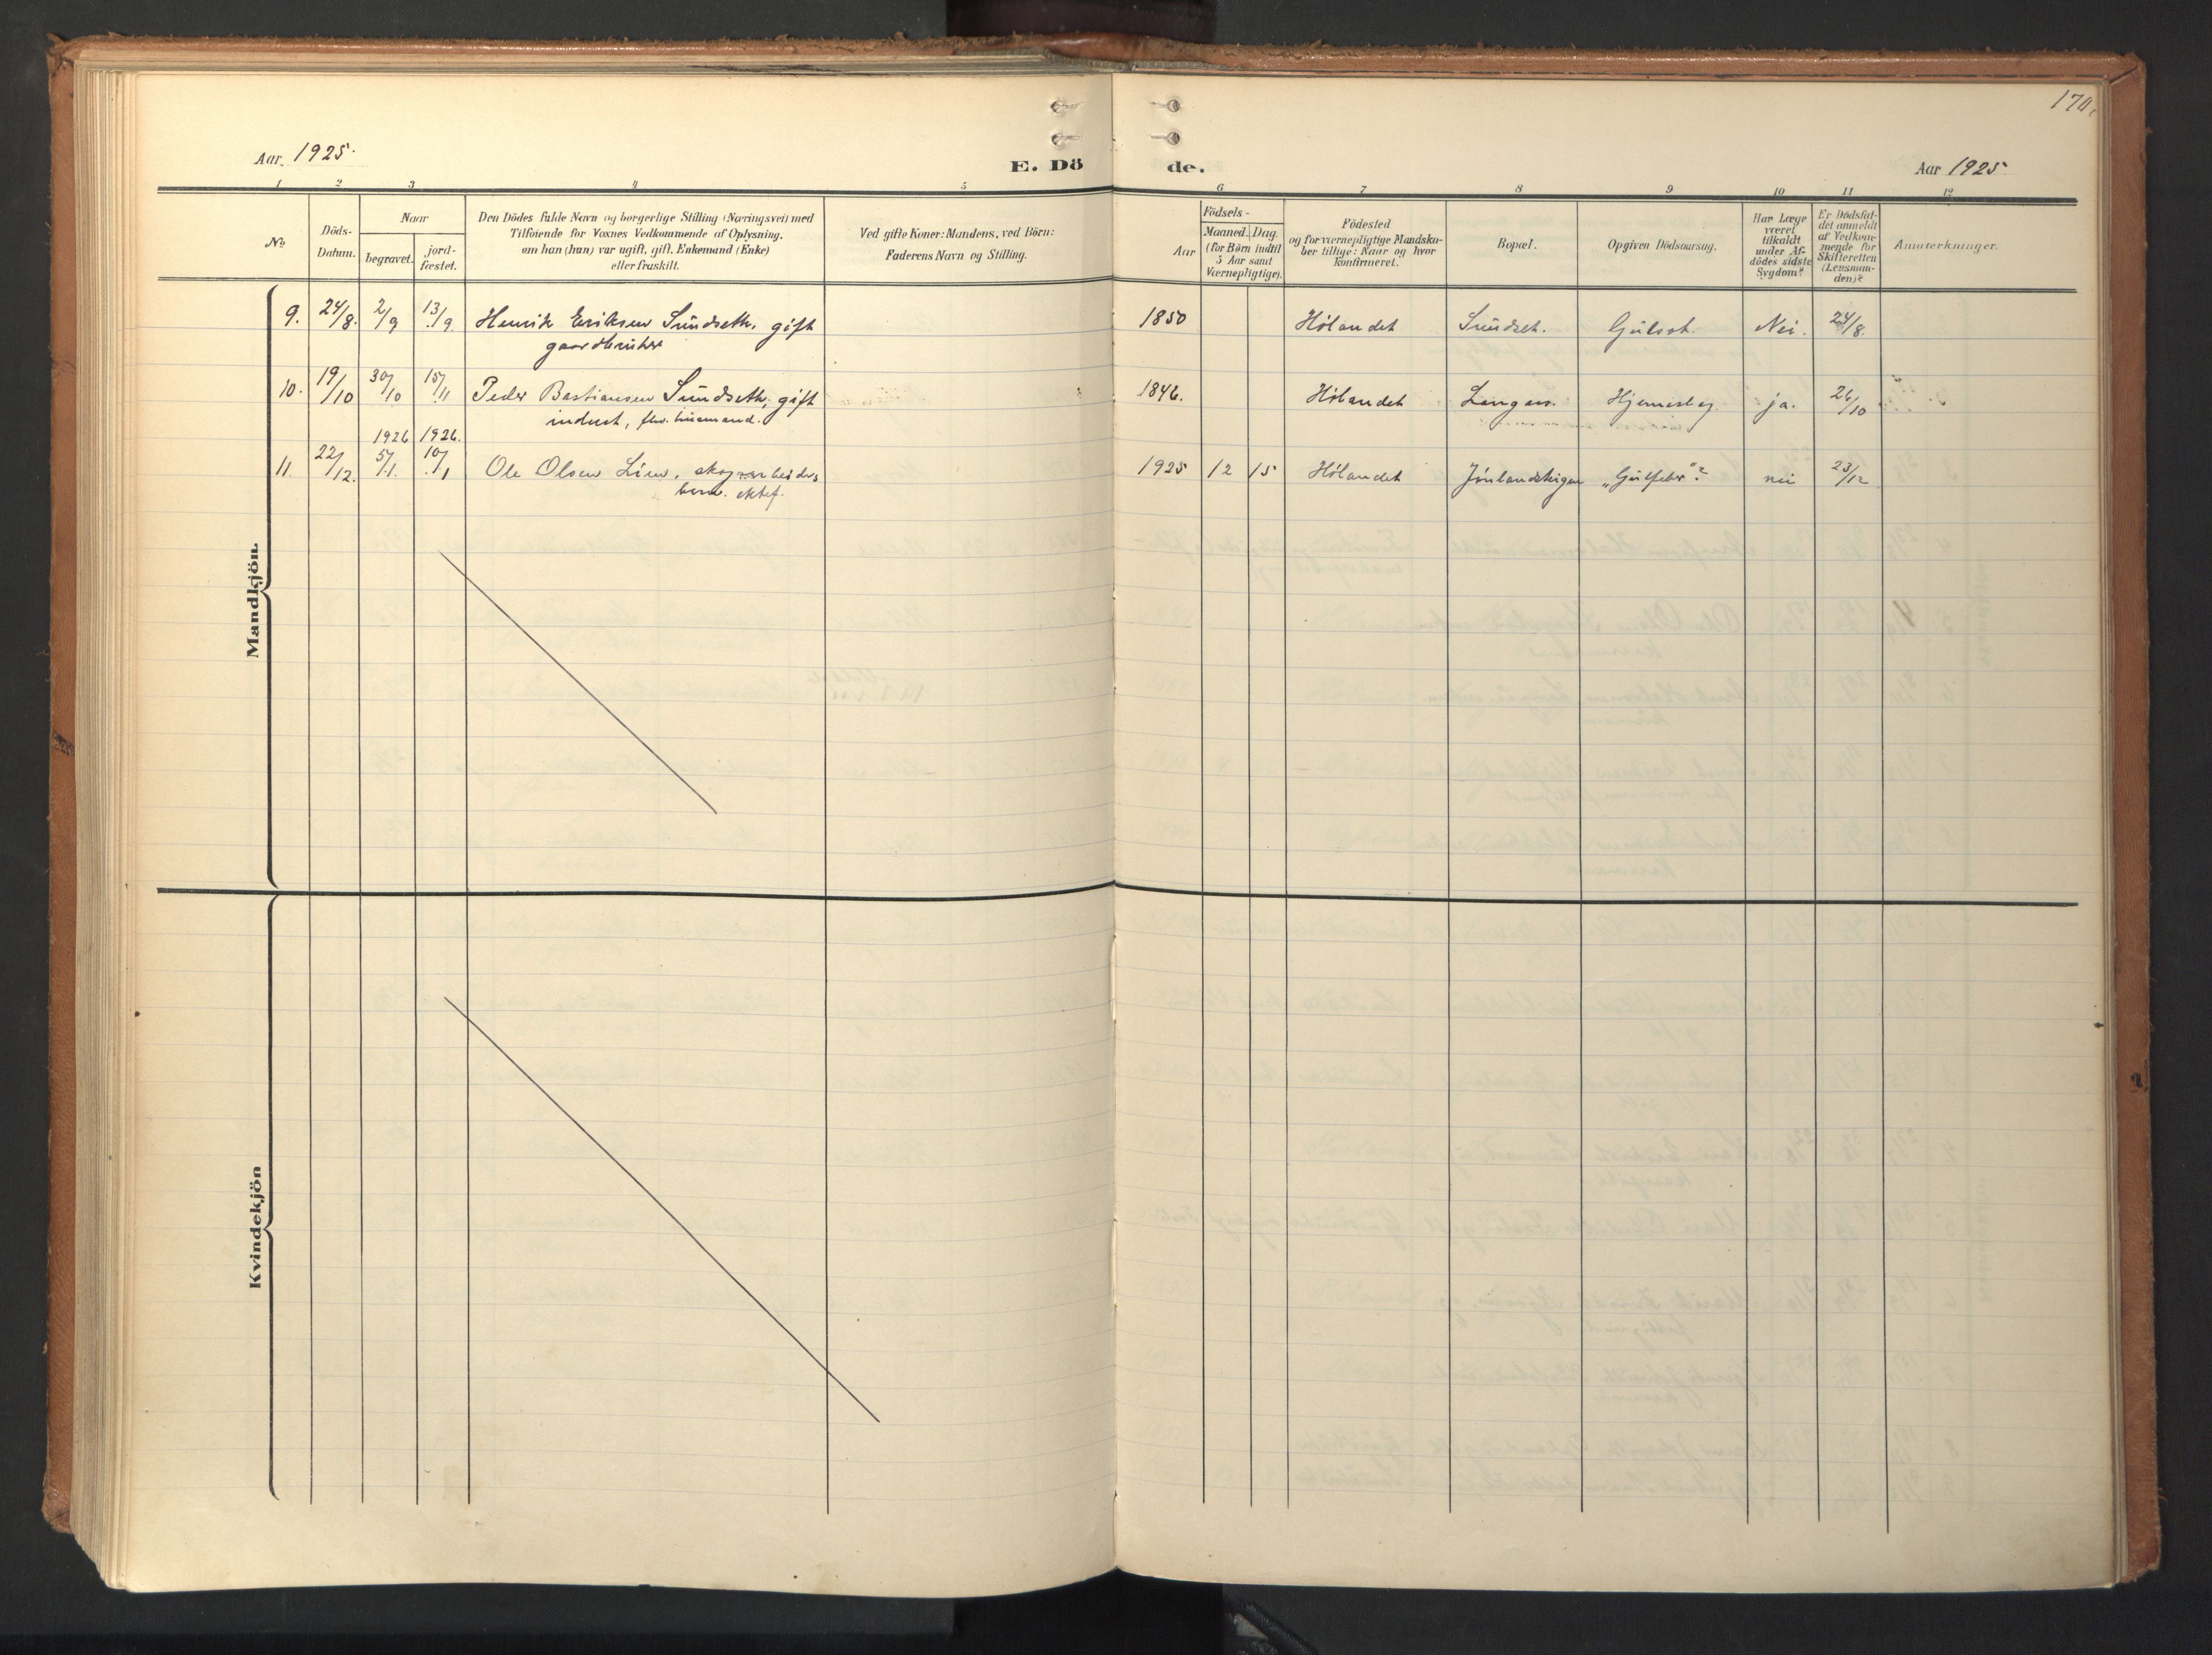 170.
Aar 1925.
E. Dö
de.
Aar 1925
1 2 3 4 5 6 7 8 9 10 11 12
No
Döds-
Datum.
Naar
begravet.
jord-
fæstet.
Den Dödes fulde Navn og borgerlige Stilling (Næringsvei) med
Tilföiende for Voxnes Vedkommende af Oplysning,
om han (hun) var ugift, gift, Enkemand (Enke)
eller fraskilt.
Ved gifte Koner: Mandens, ved Börn:
Faderens Navn og Stilling.
Födsels-
Aar
Maaned. Dag.
(for Börn indtil
5 Aar samt
Værnepligtige).
Födested
og for værnepligtige Mandska-
ber tillige: Naar og hvor
konfirmeret.
Bopæl.
Opgiven Dödsaarsag.
Har Læge
været
tilkaldt
under Af-
dödes sidste
Sygdom?
Er Dödsfal-
det anmeldt
af Vedkom-
mende for
Skifteretten
(Lensman-
den)?
Anmærkninger.
Mandkjön.
9. 24/8. 2/9 13/9. Henrik Eriksen Sundseth, gift 1850 Hølandet Sundset. Gulsot. Nei. 24/8.
gaardbruker
10. 19/10 30/10 15/11 Peder Bastiansen Sundseth, gift 1846. Hølandet Hjerneslag ja. 26/10
inderst, fhv. husmand.
1926 1926.
11. 22/12. 5/1. 10/1 Ole Olsen Lien, skogsarbeiders 1925 12 15 Hølandet "Gulfeber"? nei 23/12
barn. ektef.
Kvindekjön